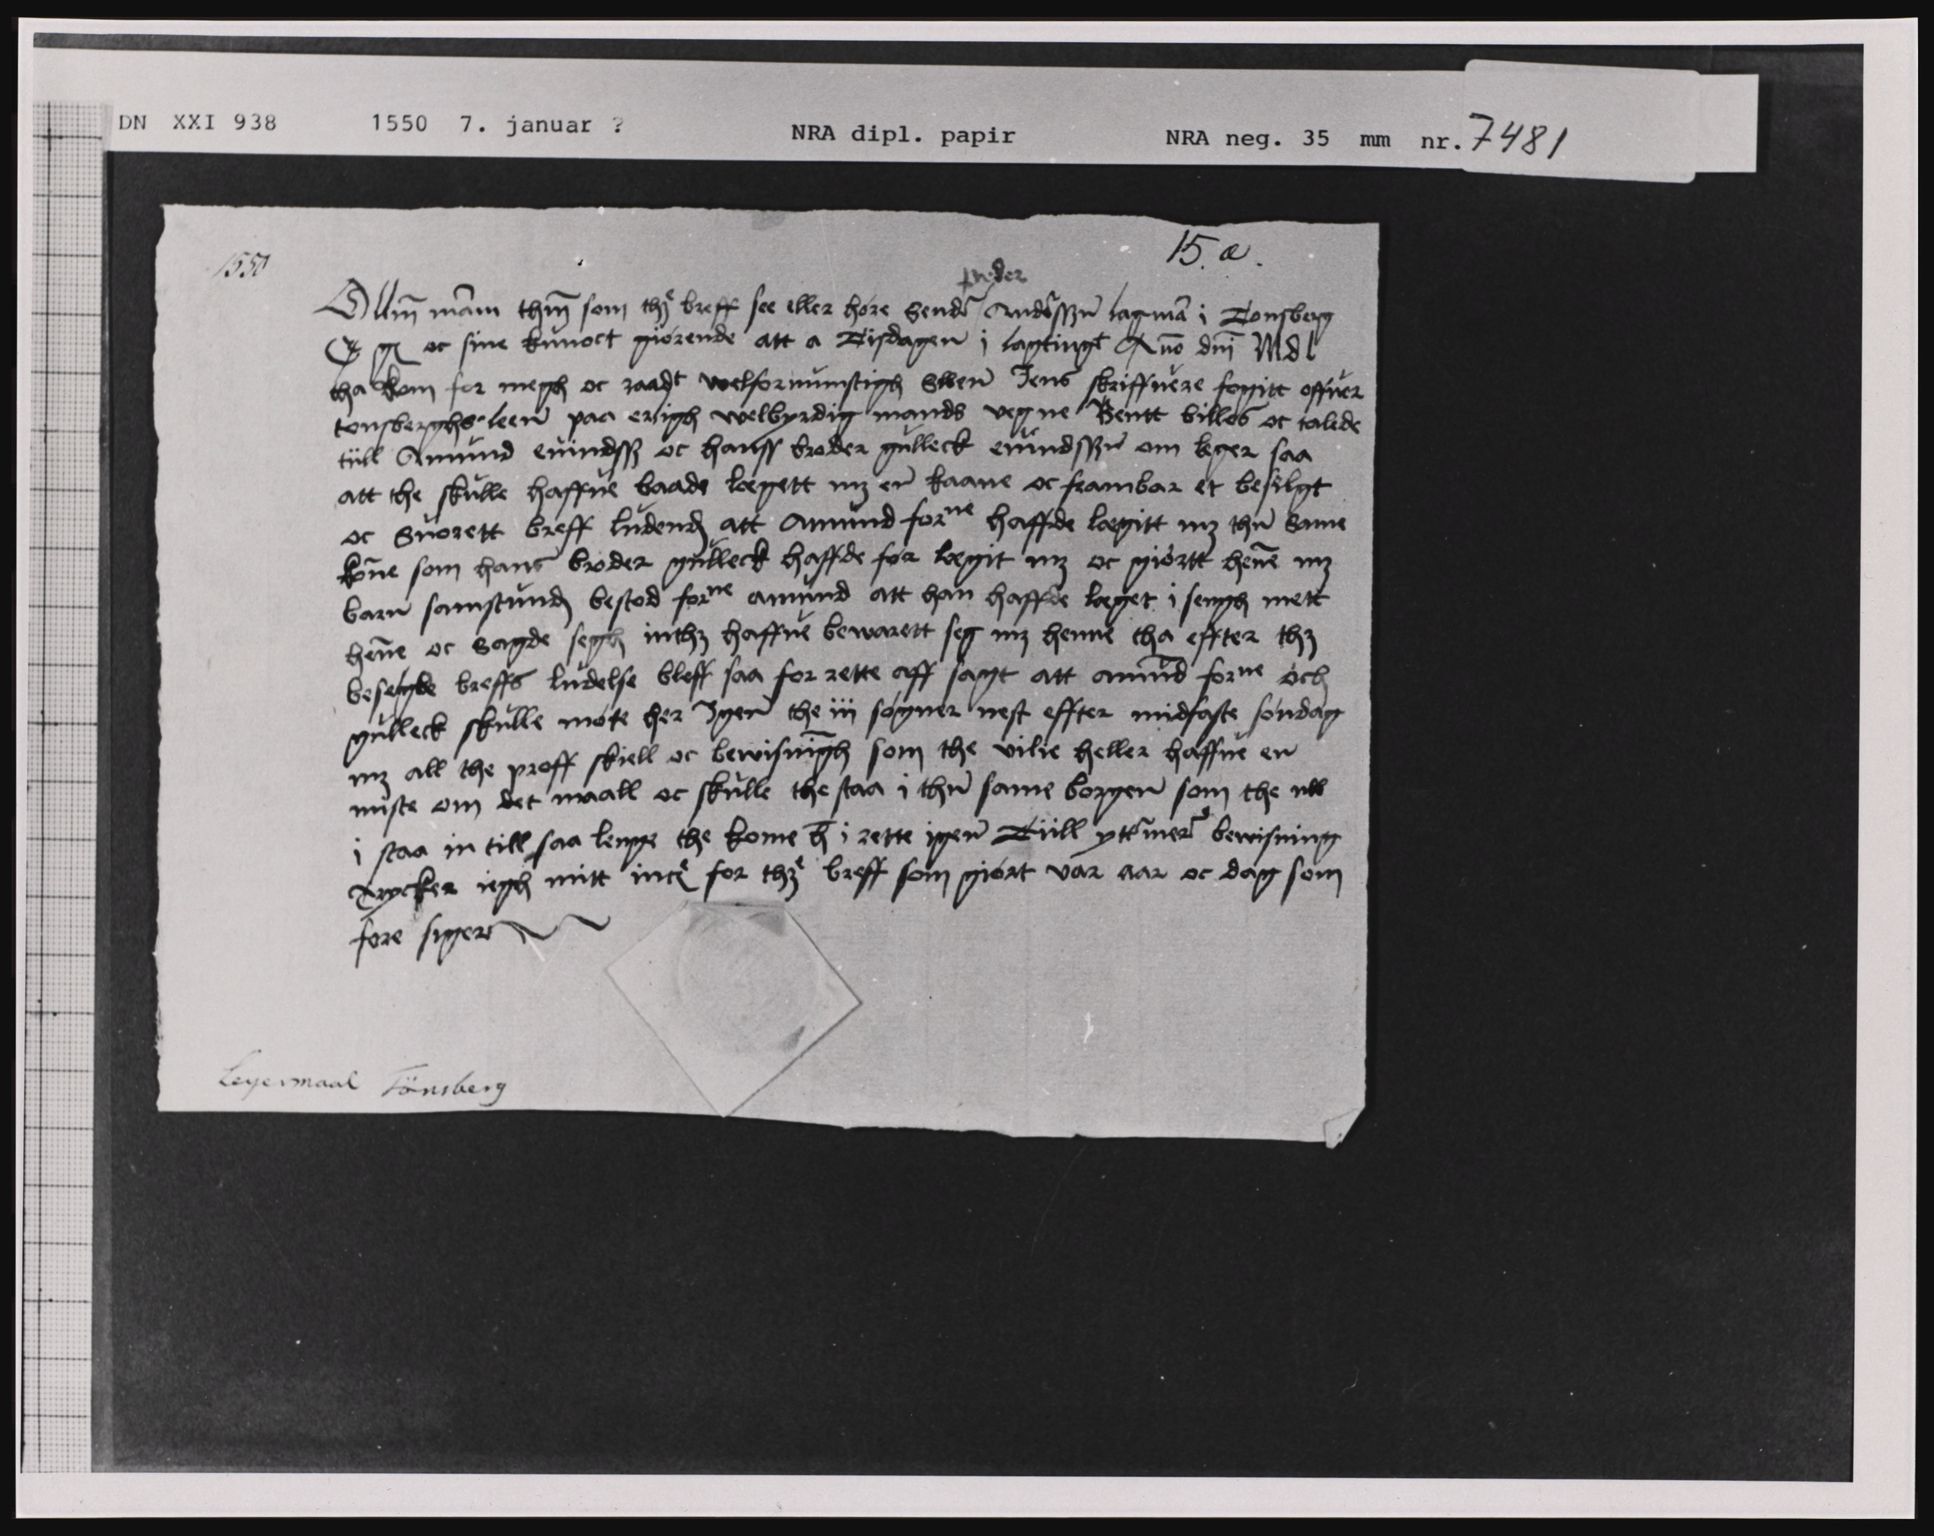 DN XXI 938 1550 7. januar ? NRA dipl. papir NRA neg. 35 mm nr. 7481
1550
15. a.
peder
Ollm̄ mann thm̄ som thɜ breff see eller høre Sender Anderssøn lagmā i Tonsberg
oc sine kunoct giørende att a Tisdagen i lagtingt Anō dnī Mdl
tha kom for megh oc raadt welfornumstigh Swen Jens skriffuere fogitt offuer
tonsberghs leen paa erligh welbyrdig mands vegne Bentt billes oc talede
till Amund euindssɜ oc hanss broder gulleck euindssøn om leger saa
att the skulle haffue baade lægett mɜ en kaane oc frambar et besilgt
oc Suorett breff ludend att Amund forne haffde lægitt mɜ thn̄ Same
kōne som hans broder gulleck haffde for lægit mɜ oc giørtt henē mɜ
barn samstund bestod forne amund att han haffde læget i sengh mett
henē oc Sagde segh inthɜ haffue bewarett seg mɜ henne tha effter thɜ
beseglde breffs ludelse bleff saa for rette aff sagt att amūd forne och
gulleck skulle møte her Igen the iii søgner nest effter midfaste søndag
mɜ all the proff skiell oc bewisnīgh som the vilie heller haffue en
miste om det maall oc skulle the staa i thn̄ same borgen som the nw
i staa in till saa lenge the kome h̄ i rette igen Till ytermer bewisning
Trycker iegh mitt incɜ for thɜ breff som giørt var aar oc dag som
fore siger
Leyermaal Tönsberg